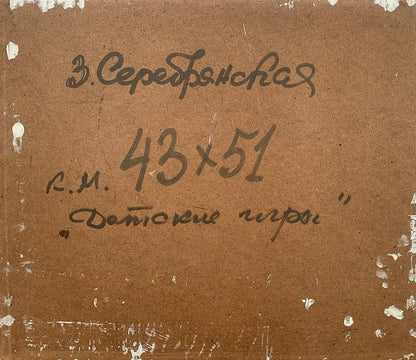 З. Серебрянская
к.м. 43×51
„Детские игры"